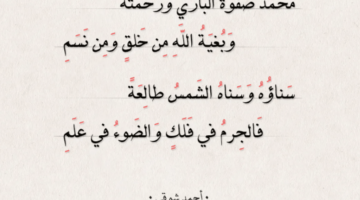 محمد صفوة الباري ورحمته
وَبُغيَةُ اللَّهِ مِن خَلقٍ وَمِن نَسَمِ
سَناؤُهُ وَسَناهُ الشَمسُ طالِعَةً
فَالجِرمُ في فَلَكٍ وَالضَوءُ في عَلَمِ
· أحمد شوقي ·